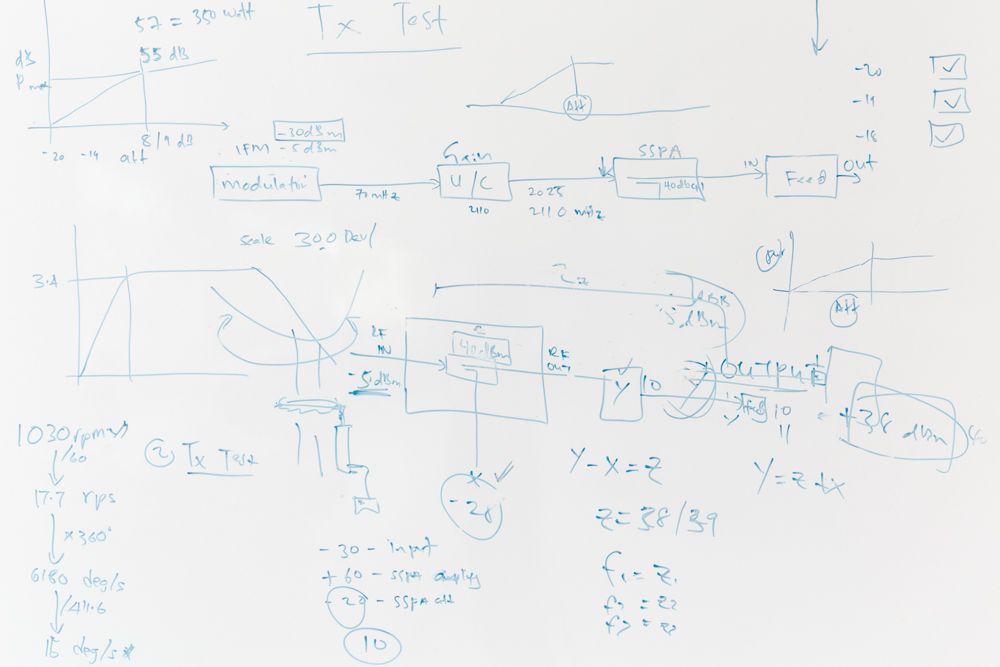 57 = 350 watt
Tx Test
dB
55 dB
-20
-19
-18
-20 -19 att 8/9 dB
-30dBm
IFM -5dBm
Att
modulator
70 mHz
Gain
U/C
2110
2025
2110 mHz
SSPA
IN
Feed
OUT
scale 300 Dev/
3.4
Att
RF
IN
-5dBm
40dBm
RF
OUT
Y
10
OUTPUT
10
11
= +38 dBm
1030 rpm
/60
17.7 rps
×360°
6180 deg/s
/411.6
15 deg/s
2 Tx Test
X
-28
Y-X=Z
Y=Z+X
Z=38/39
-30 - input
+60 - SSPA amplify
-20 - SSPA att
10
f1 = Z1
f2 = Z2